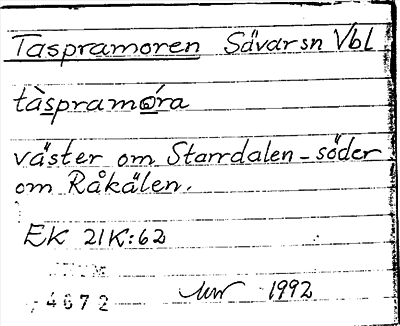 Taspramoren Sävarsn Vbl
tàspramóra
väster om Starrdalen - söder
om Råkälen.
EK 21K:62
4672
1992